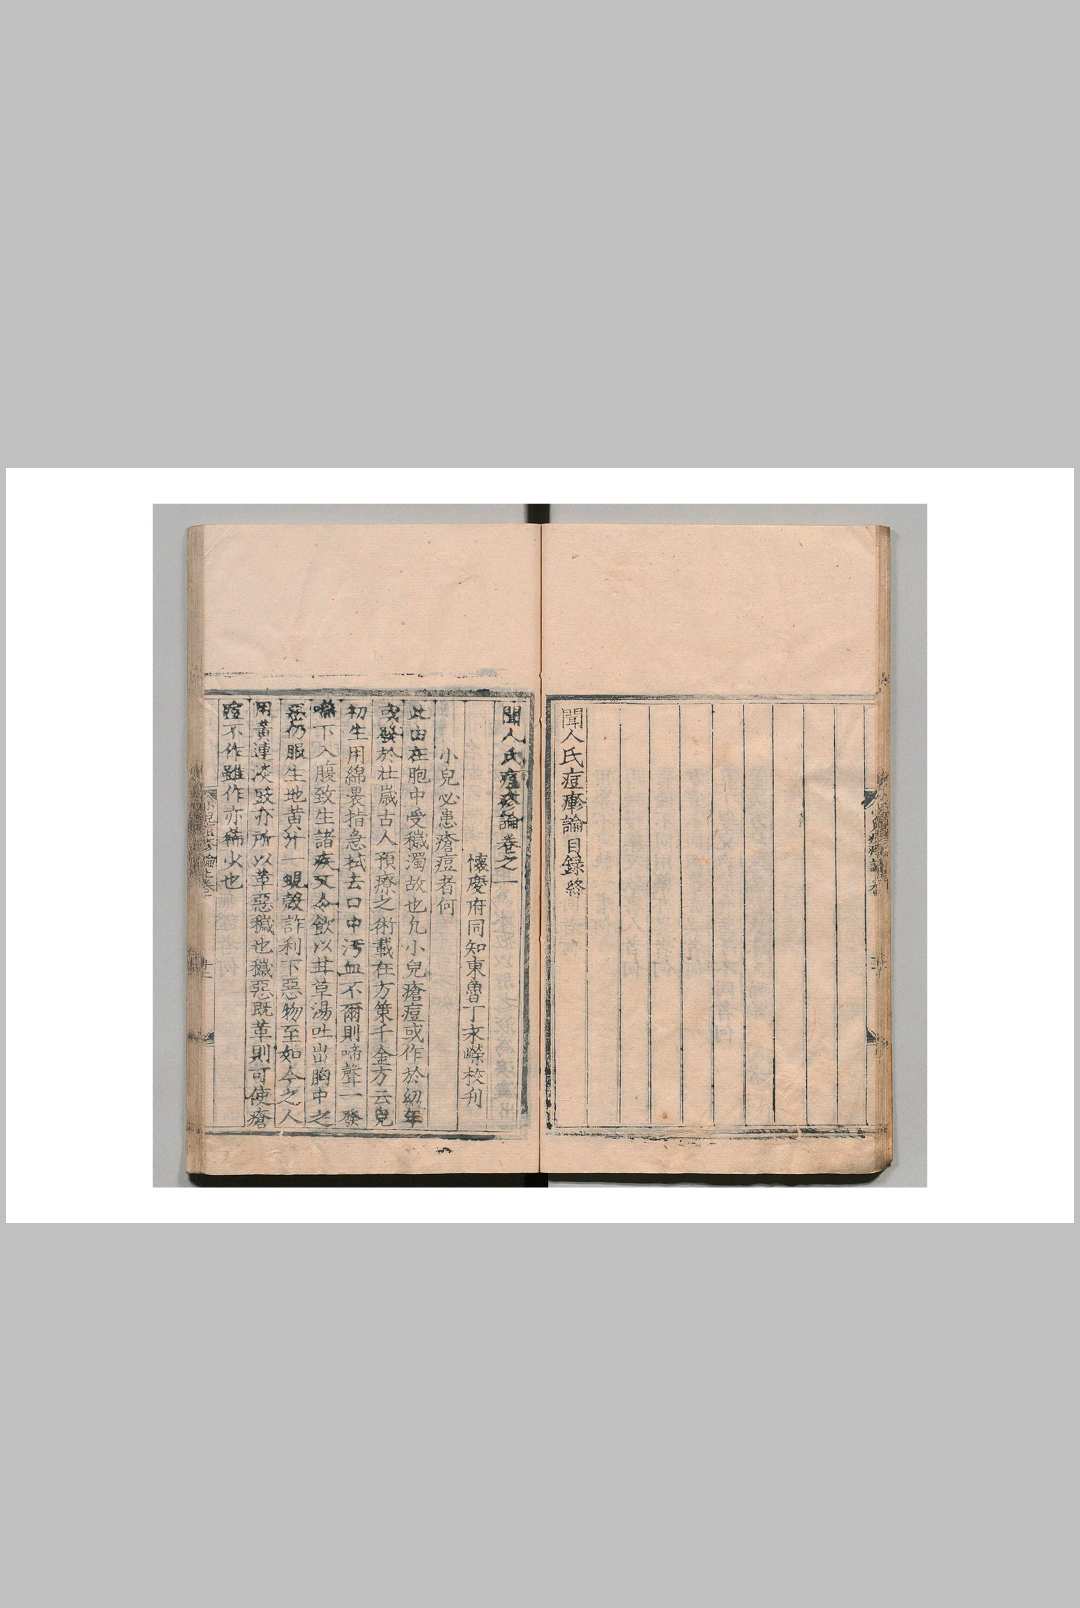 聞人氏痘疹論目録終
聞人氏痘疹論卷之一
懷慶府同知東魯丁永嶸校刊
小兒必患瘡痘者何
此由在胞中受穢濁故也凢小兒瘡痘或作於幼年
或發於壯歳古人預療之術載在方策千金方云兒
初生用綿裹指急拭去口中汚血不爾則啼聲一發
嚥下入腹致生諸疾又令飲以甘草湯吐出胸中之
惡仍服生地黃汁一蜆殻許利下惡物至如今之人
用黃連淡豉亦所以革惡穢也穢惡既革則可使瘡
痘不作雖作亦稀少也